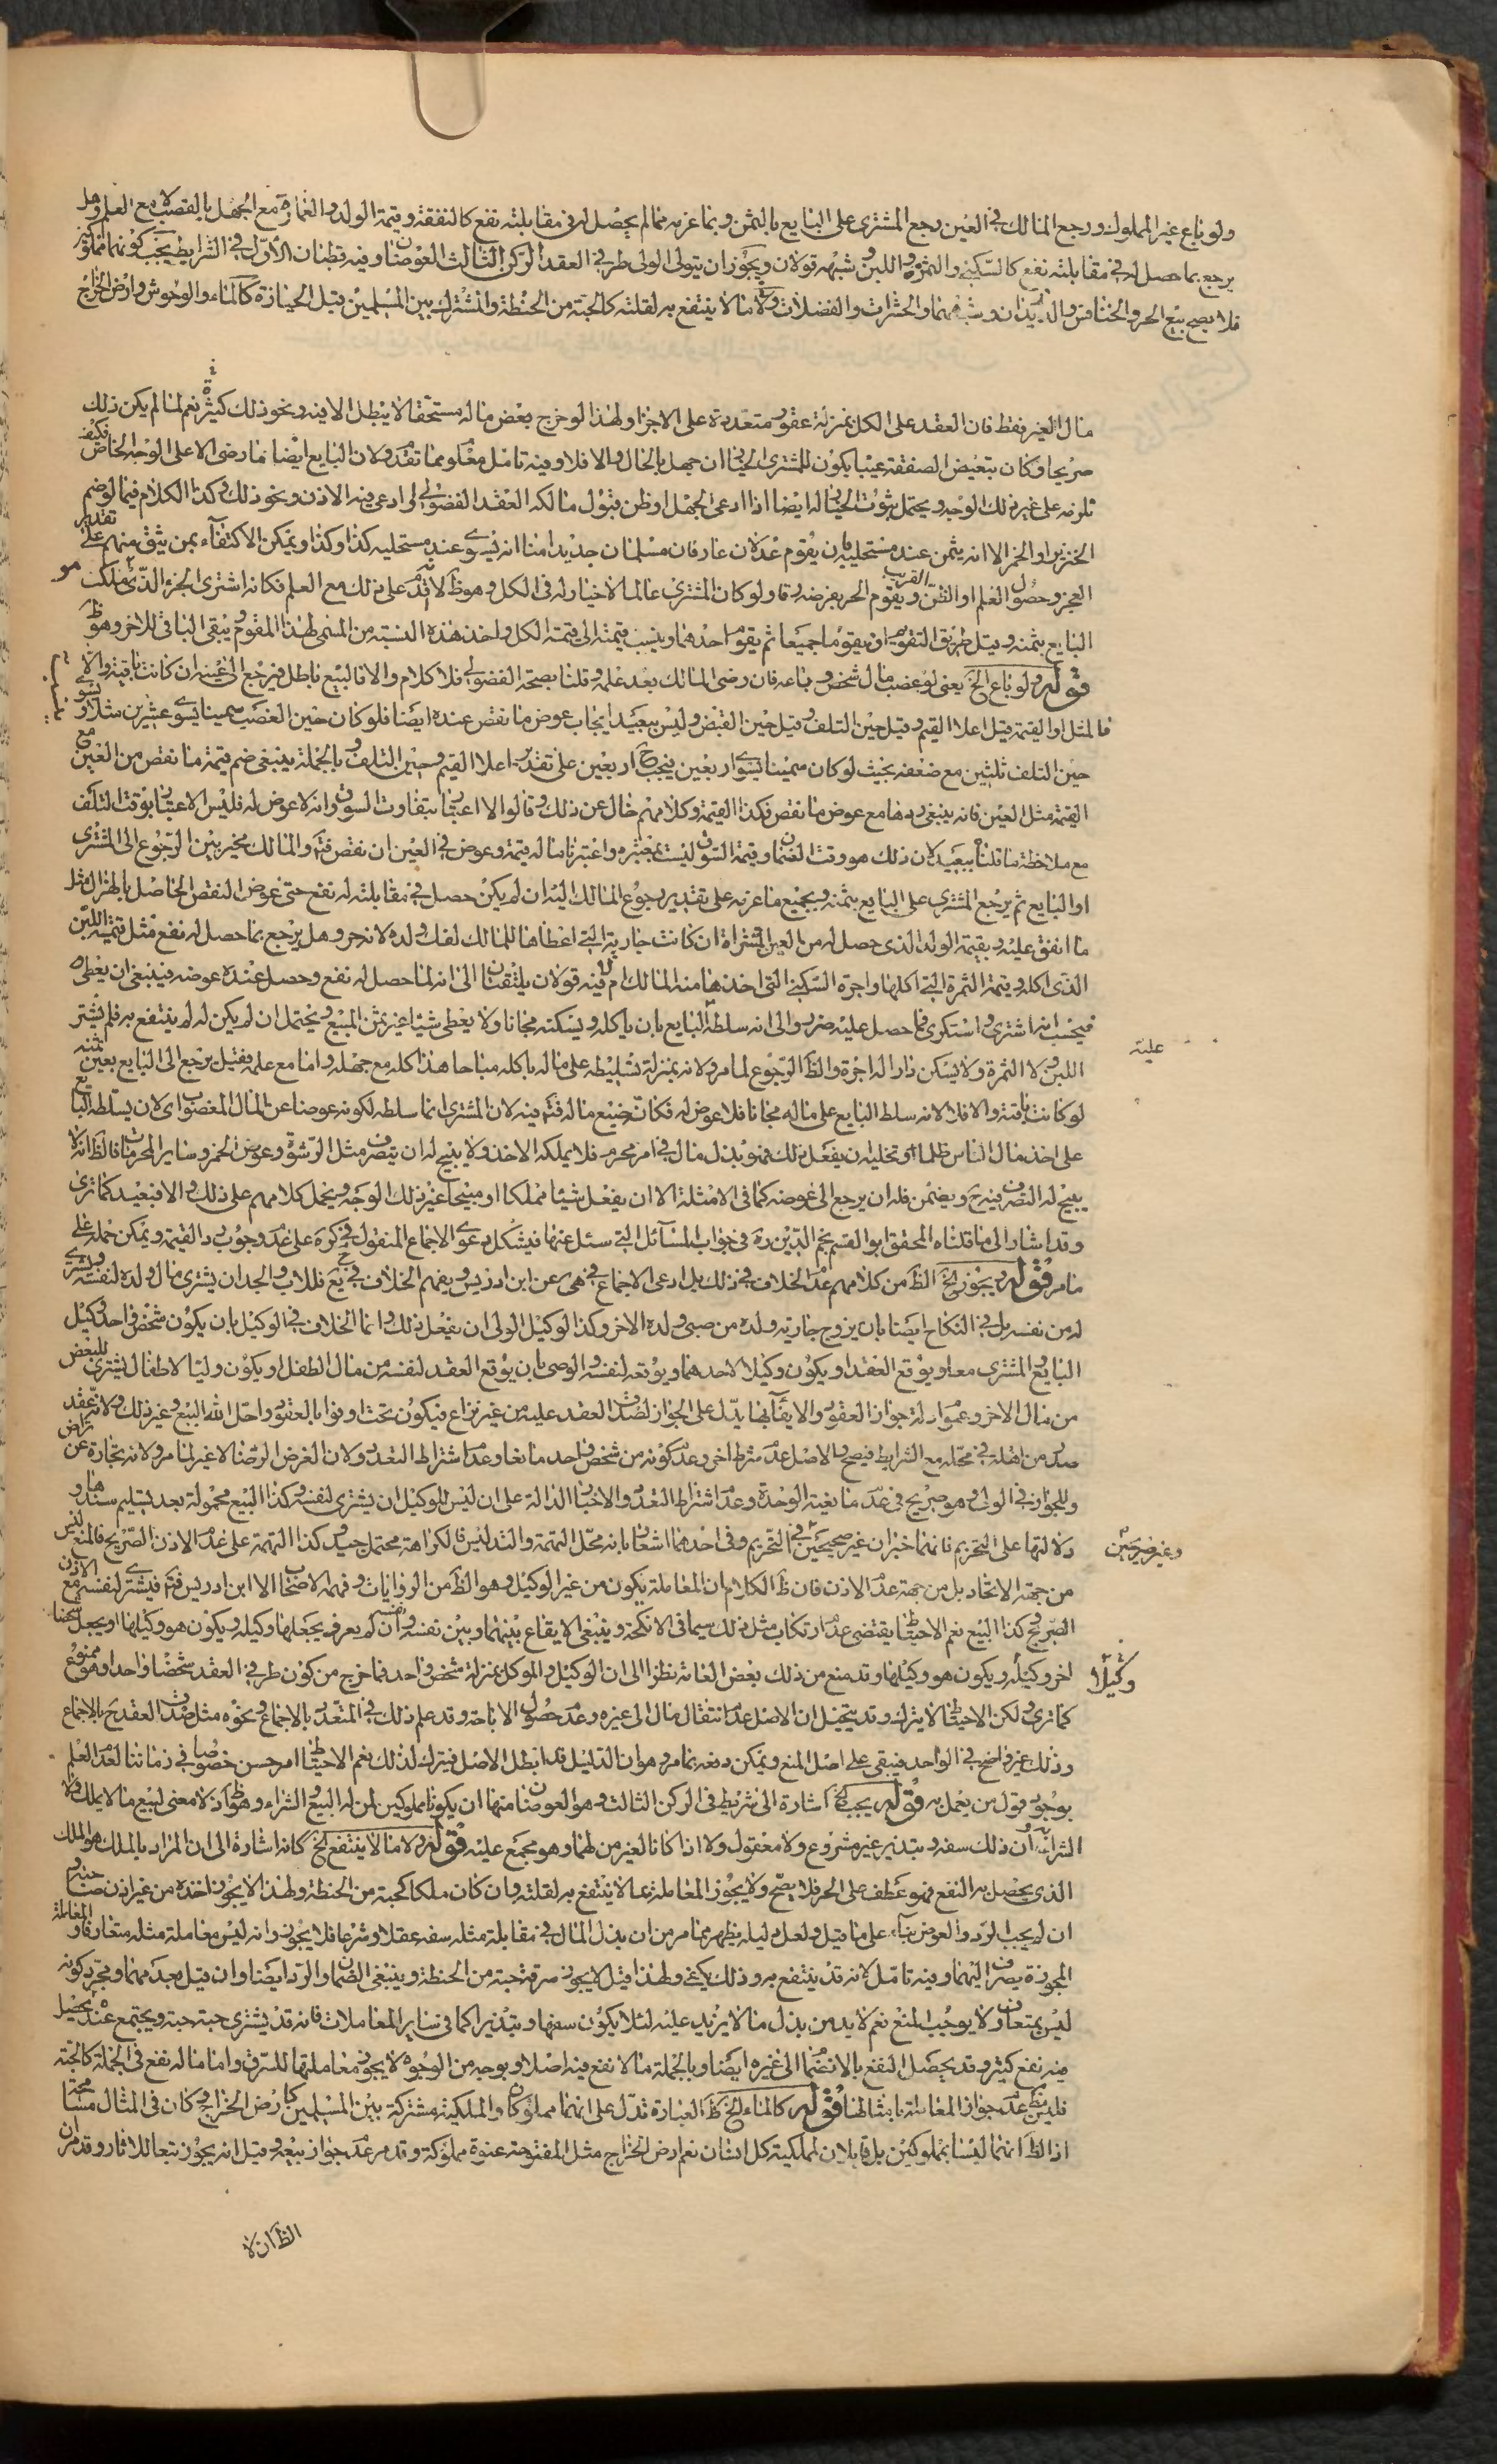 ولو باع غير المملوك ورجع المالك في العين رجع المشتري على البايع بالثمن وبما غرمه مما لم يحصل له في مقابلته نفع كالنفقة وقيمة الولد والعمارة مع الجهل بالغصب لا مع العلم وهل
يرجع بما حصل له في مقابلته نفع كالسكنى والثمرة واللبن وشبهه قولان ويجوز ان يتولى الولى طرفي العقد الركن الثالث العوضان وفيه قطبان الاول في الشرايط يجب كونهما مملوكين
فلا يصح بيع الحر والخنافس والديدان وشبههما والحشرات والفضلات ولا ما لا ينتفع به لقلته كالحبة من الحنطة والمشترك بين المسلمين قبل الحيازة كالماء والوحوش وارض الخراج
مال الغير فقط فان العقد على الكل بمنزلة عقود متعددة على الاجزاء ولهذا لو خرج بعض ماله مستحقا لا يبطل الا فيه ونحو ذلك كثيرة نعم لما لم يكن ذلك
صريحا وكان تبعيض الصفقة عيبا يكون للمشترى الخيار ان جهل بالحال والا فلا وفيه تامل معلوم مما تقدم ولان البايع ايضا ما رضى الا على الوجه الخاص فكيف
تلزمه على غير ذلك الوجه ويحتمل ثبوت الخيار له ايضا اذا ادعى الجهل او ظن قبول مالكه العقد الفضولى او ادعى فيه الاذن ونحو ذلك وكذا الكلام فيما لو ضم
الخنزير او الخمر الا انه يثمن عند مستحليه بان يقوم عدلان عارفان مسلمان جديدا منا انه يسوى عند مستحليه كذا وكذا ويمكن الاكتفاء بمن يثق منهم على تقدير
العجز وحصول العلم او الظن القريب ويقوم الحر بفرضه رقا ولو كان المشترى عالما لا خيار له في الكل وهو ظ لانه قدم على ذلك مع العلم فكانه اشترى الجزء الذى يملكه هو
البايع بثمنه وقيل طريق التقويم ان يقوما جميعا ثم يقوم احدهما وينسب قيمته الى قيمة الكل واخذ هذه النسبة من المسمى لهذا المقوم يبقى الباقى للاخر وهو ظ
قوله ولو باع الخ يعنى لو غصب مال شخص وباعه فان رضى المالك بعد علمه وقلنا بصحة الفضولى فلا كلام والا فالبيع باطل فيرجع الى عينه ان كانت باقية والا
فالمثل او القيمة قيل اعلا القيم وقيل حين التلف وقيل حين القبض وليس ببعيد ايجاب عوض ما نقص عنده ايضا فلو كان حين الغصب سمينا يسوى عشرين مثلا ويسوى
حين التلف ثلثين مع ضعفه بحيث لو كان سمينا يسوى اربعين يجب ح اربعين على تقدير اعلا القيم وحين التلف وبالجملة ينبغى ضم قيمة ما نقص من العين مع
القيمة مثل العين فانه ينبغى ردها مع عوض ما نقص فكذا القيمة وكلامهم خال عن ذلك وقالوا لا اعتبار بتفاوت السوق وانه لا عوض له فليس الاعتبار بوقت التلف
مع ملاحظة ما قلناه ببعيد لان ذلك هو وقت الضمان وقيمة السوق ليست بمعتبره واعتبرنا ماله قيمة وعوض في العين ان نقص فتم والمالك مخير بين الرجوع الى المشترى
او البايع ثم يرجع المشترى على البايع بثمنه وبجميع ما غرمه على تقدير رجوع المالك اليه ان لم يكن حصل في مقابلته له نفع حتى عوض النقص الحاصل بالهزال مثلا
ما انفق عليه وبقيمة الولد الذى حصل له من العين المشتراة ان كانت جارية التى اعطاها للمالك لفك ولده لانه حر وهل يرجع بما حصل له نفع مثل قيمة اللبن
الذى اكله وقيمة الثمرة التى اكلها واجرة السكنى التى اخذها منه المالك ام لا فيه قولان يلتفتان الى انه لما حصل له نفع وحصل عنده عوضه فينبغى ان يعطى
فيحسب انه اشترى واستكرى فما حصل عليه ضرر والى انه سلطه البايع بان ياكله ويسكنه مجانا ولا يعطى شيئا غير ثمن المبيع ويحتمل ان لم يكن له لم ينتفع به فلم يشتر
عليه
اللبن ولا الثمرة ولا يسكن دارا له اجرة والظ الرجوع لما مر ولانه بمنزلة تسليطه على ماله باكله مباحا هذا كله مع جهله واما مع علمه فقيل يرجع الى البايع بعين ثمنه
لو كانت باقية والا فلا لانه سلط البايع على ماله مجانا فلا عوض له فكانه ضيع ماله فتم فيه لان المشترى انما سلطه لكونه عوضا عن المال المغصوب اى لان يسلطه البايع
على اخذ مال الناس ظلما او تخليه ان يفعل ذلك فهو بذل مال في امر محرم فلا يملكه الاخذ ولا يبيح له ان يتصرف مثل الرشوة وعوض الخمر وساير المحرمات فالظ انه لا
يبيح له التصرف فيه ح ويضمن فله ان يرجع الى عوضه كما في الامثلة الا ان يفعل شيئا مملكا او مبيحا غير ذلك الوجه ويحمل كلامهم على ذلك والا فبعيد كما ترى
وقد اشار الى ما قلناه المحقق ابو القسم نجم الدين ره في جواب المسائل التى سئل عنها فيشكل دعوى الاجماع المنقول في كره على عدم وجوب رد القيمة ويمكن حمله على
ما مر قوله ويجوز الخ الظ من كلامهم عدم الخلاف في ذلك بل ادعى الاجماع في هى عن ابن ادريس ويفهم الخلاف في يع فللاب والجد ان يشترى مال ولده لنفسه ويشترى
له من نفسه بل في النكاح ايضا بان يزوج جارية ولده من صبى ولده الاخر وكذا لوكيل الولى ان يفعل ذلك وانما الخلاف في الوكيل بان يكون شخص واحد وكيل
البايع والمشترى معا ويوقع العقد او يكون وكيلا لاحدهما ويوقعه لنفسه والوصى بان يوقع العقد لنفسه من مال الطفل او يكون وليا لاطفال يشترى للبعض
من مال الاخر وعموم ادلة جواز العقود والايفاء بها يدل على الجواز لصدق العقد عليه من غير نزاع فيكون تحت اوفوا بالعقود واحل الله البيع وغير ذلك ولانه عقد
صدر من اهله في محله مع الشرايط فيصح والاصل عدم شرط اخر وعدم كونه من شخص واحد مانعا وعدم اشتراط التعدد ولان الغرض الرضا لا غير لما مر ولانه تجارة عن تراض
وللجواز في الولى وهو صريح في عدم مانعية الوحدة وعدم اشتراط التعدد والاخبار الدالة على ان ليس للوكيل ان يشترى لنفسه وكذا البيع محمولة بعد تسليم سندها و
دلالتها على التحريم فانهما خبران غير صحيحين وغير صريحين في التحريم وفي احدهما اشعار بانه محل التهمة والتدليس فالكراهة محتمل جيد وكذا التهمة على عدم الاذن الصريح فالمنع ليس
من جهة الاتحاد بل من جهة عدم الاذن فان ظ الكلام ان المعاملة يكون من غير الوكيل وهو الظ من الروايات وفهمه الاصحاب الا ابن ادريس فتم فيشترى لنفسه مع الاذن
الصريح وكذا البيع نعم الاحتياط يقتضى عدم ارتكاب مثل ذلك سيما في الانكحة وينبغى الايقاع بينهما وبين نفسه وان لم يعرف يجعلها وكيله ويكون هو وكيلها او يجعل شخصا
اخر وكيله ويكون هو وكيلا وكيلها وقد منع من ذلك بعض العامة نظرا الى ان الوكيل والموكل بمنزلة شخص واحد فما خرج من كون طرفي العقد شخصا واحدا وهو ممنوع
كما ترى ولكن الاحتياط لا يترك وقد يتخيل ان الاصل عدم انتقال مال الى غيره وعدم حصول الاباحة وقد علم ذلك في المتعدد بالاجماع ونحوه مثل صدق العقد ح بالاجماع
وذلك غير واضح في الواحد فيبقى على اصل المنع ويمكن دفعه بما مر وهو ان الدليل قد ابطل الاصل فيترك لذلك نعم الاحتياط امر حسن خصوصا في زماننا لعدم العلم
بوجود قول من يعمل به قوله يجب الخ اشارة الى شرايط في الركن الثالث وهو العوضان منها ان يكونا مملوكين لمن له البيع والشراء وهو ظ اذ لا معنى لبيع ما لا يملك ولا
الشراء به اذ ان ذلك سفه وتبذير غير مشروع ولا معقول ولا اذا كانا لغير من لهما وهو مجمع عليه قوله ولا ما لا ينتفع الخ كانه اشارة الى ان المراد بالملك هو الملك
الذى يحصل به النفع فهو عطف على الحر فلا يصح ولا يجوز المعاملة بما لا ينتفع به لقلته وان كان ملكا كحبة من الحنطة ولهذا لا يجوز اخذه من غير اذن صاحبه و
ان لم يجب الرد والعوض بناء على ما قيل ولعل دليله يظهر مما مر من ان بذل المال في مقابلة مثله سفه عقلا وشرعا فلا يجوز وانه ليس معاملة مثله متعارفا والمعاملة
المجوزة يصرف اليهما وفيه تامل لانه قد ينتفع به وذلك يكفى ولهذا قيل لا يجوز سرقة حبة من الحنطة وينبغى الضمان والرد ايضا وان قيل بعدمهما ومجرد كونه
ليس بمتعارف لا يوجب المنع نعم لا بد من بذل ما لا يزيد عليه لئلا يكون سفها وتبذيرا كما في ساير المعاملات فانه قد يشترى حبة حبة ويجتمع عنده يحصل
منه نفع كثير وقد يحصل النفع بالانضمام الى غيره ايضا وبالجملة ما لا نفع فيه اصلا وبوجه من الوجوه لا يجوز معاملتها للسرف واما ماله نفع في الجملة كالحبة
فليس بظ عدم جواز المعاملة بامثالها قوله كالماء الخ ظ العبارة تدل على انهما مملوكان والملكية مشتركة بين المسلمين كارض الخراج وكان في المثال مسامحة
اذ الظ انهما ليسا بمملوكين بل قابلان لملكية كل انسان نعم ارض الخراج مثل المفتوحة عنوة مملوكة وقد مر عدم جواز بيعه وقيل انه يجوز تبعا للاثار وقد مر ان
الظ ان لا